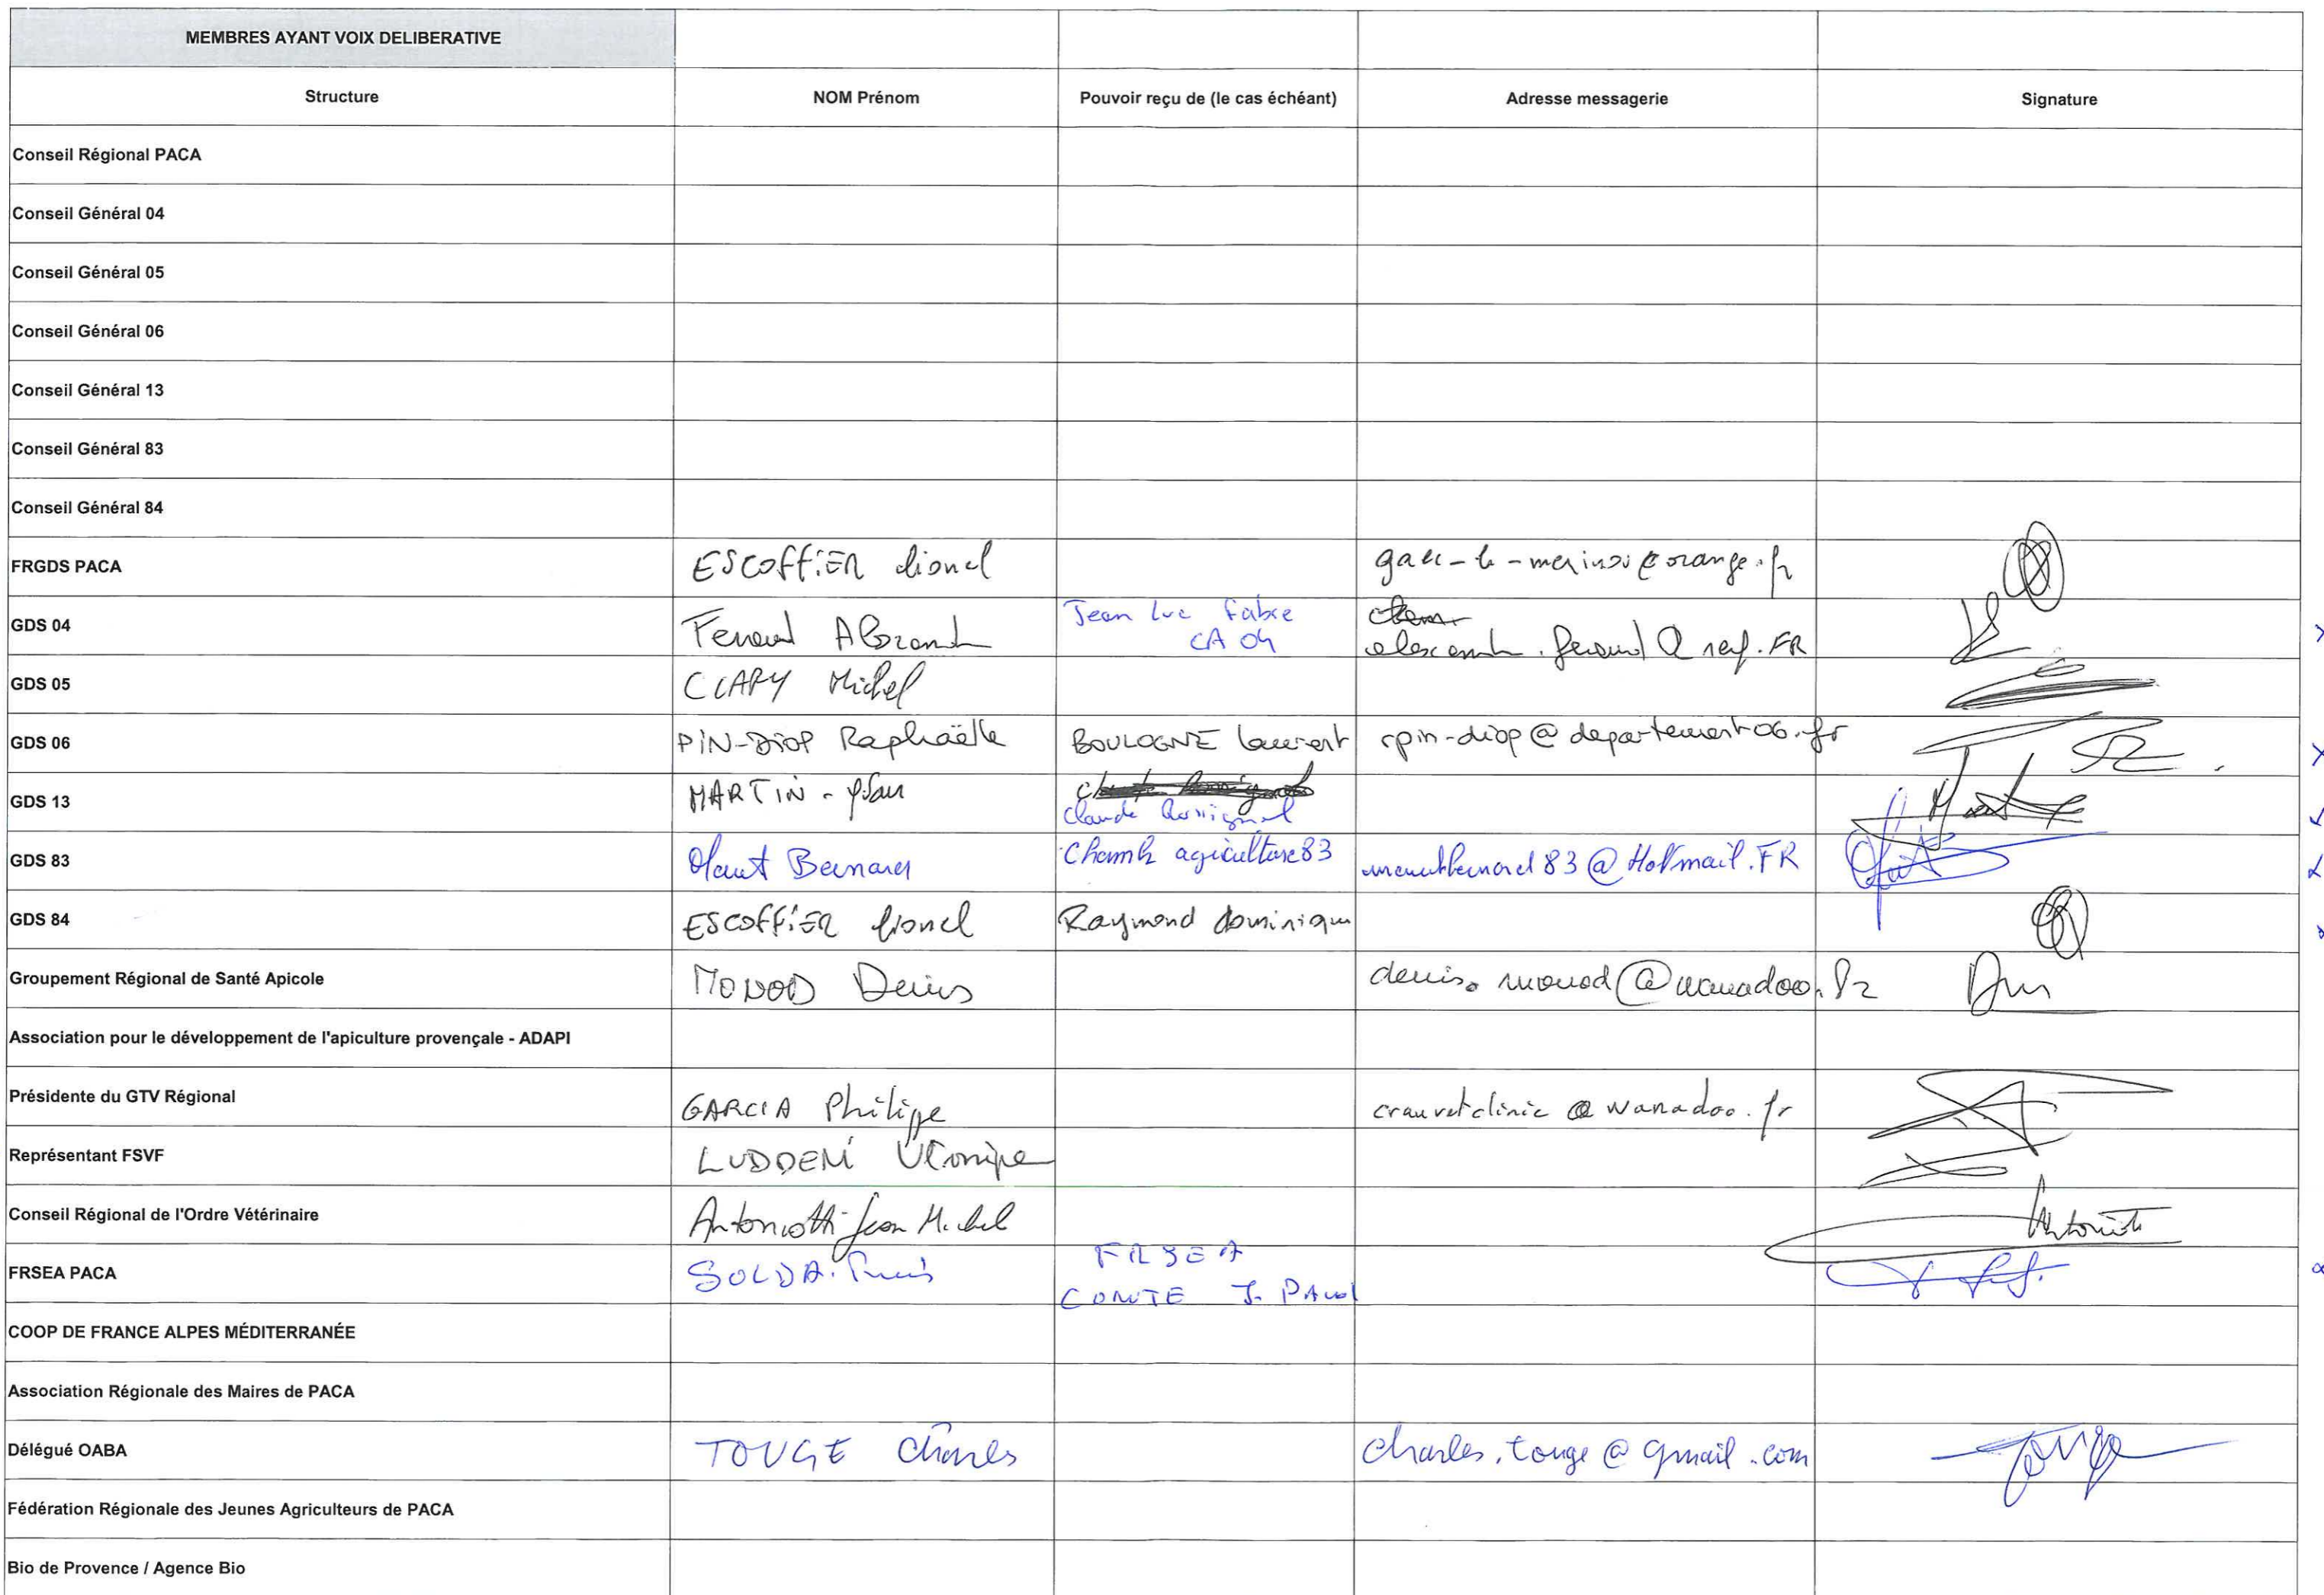 MEMBRES AYANT VOIX DELIBERATIVE
Structure NOM Prénom Pouvoir reçu de (le cas échéant) Adresse messagerie Signature
Conseil Régional PACA
Conseil Général 04
Conseil Général 05
Conseil Général 06
Conseil Général 13
Conseil Général 83
Conseil Général 84
FRGDS PACA ESCOFFiER lionel
GDS 04 Jean Luc Fabre
CA 04
GDS 05 CLAPY Michel
GDS 06 PiN-DiOP Raphaëlle BOULOGNE Laurent rpin-diop@departement06.fr
GDS 13 MARTiN
Claude Rossignol
GDS 83 Bernard agriculture83
GDS 84 ESCOFFiER lionel Raymond dominique
Groupement Régional de Santé Apicole MONOD Denis denis.monod@wanadoo.fr
Association pour le développement de l'apiculture provençale - ADAPI
Présidente du GTV Régional GARCIA Philippe crauvetclinic@wanadoo.fr
Représentant FSVF
Conseil Régional de l'Ordre Vétérinaire Antoniotti Jean Michel
FRSEA PACA SOLDA FRSEA
COMTE J. PAUL
COOP DE FRANCE ALPES MÉDITERRANÉE
Association Régionale des Maires de PACA
Délégué OABA TOUGE Charles charles.touge@gmail.com
Fédération Régionale des Jeunes Agriculteurs de PACA
Bio de Provence / Agence Bio